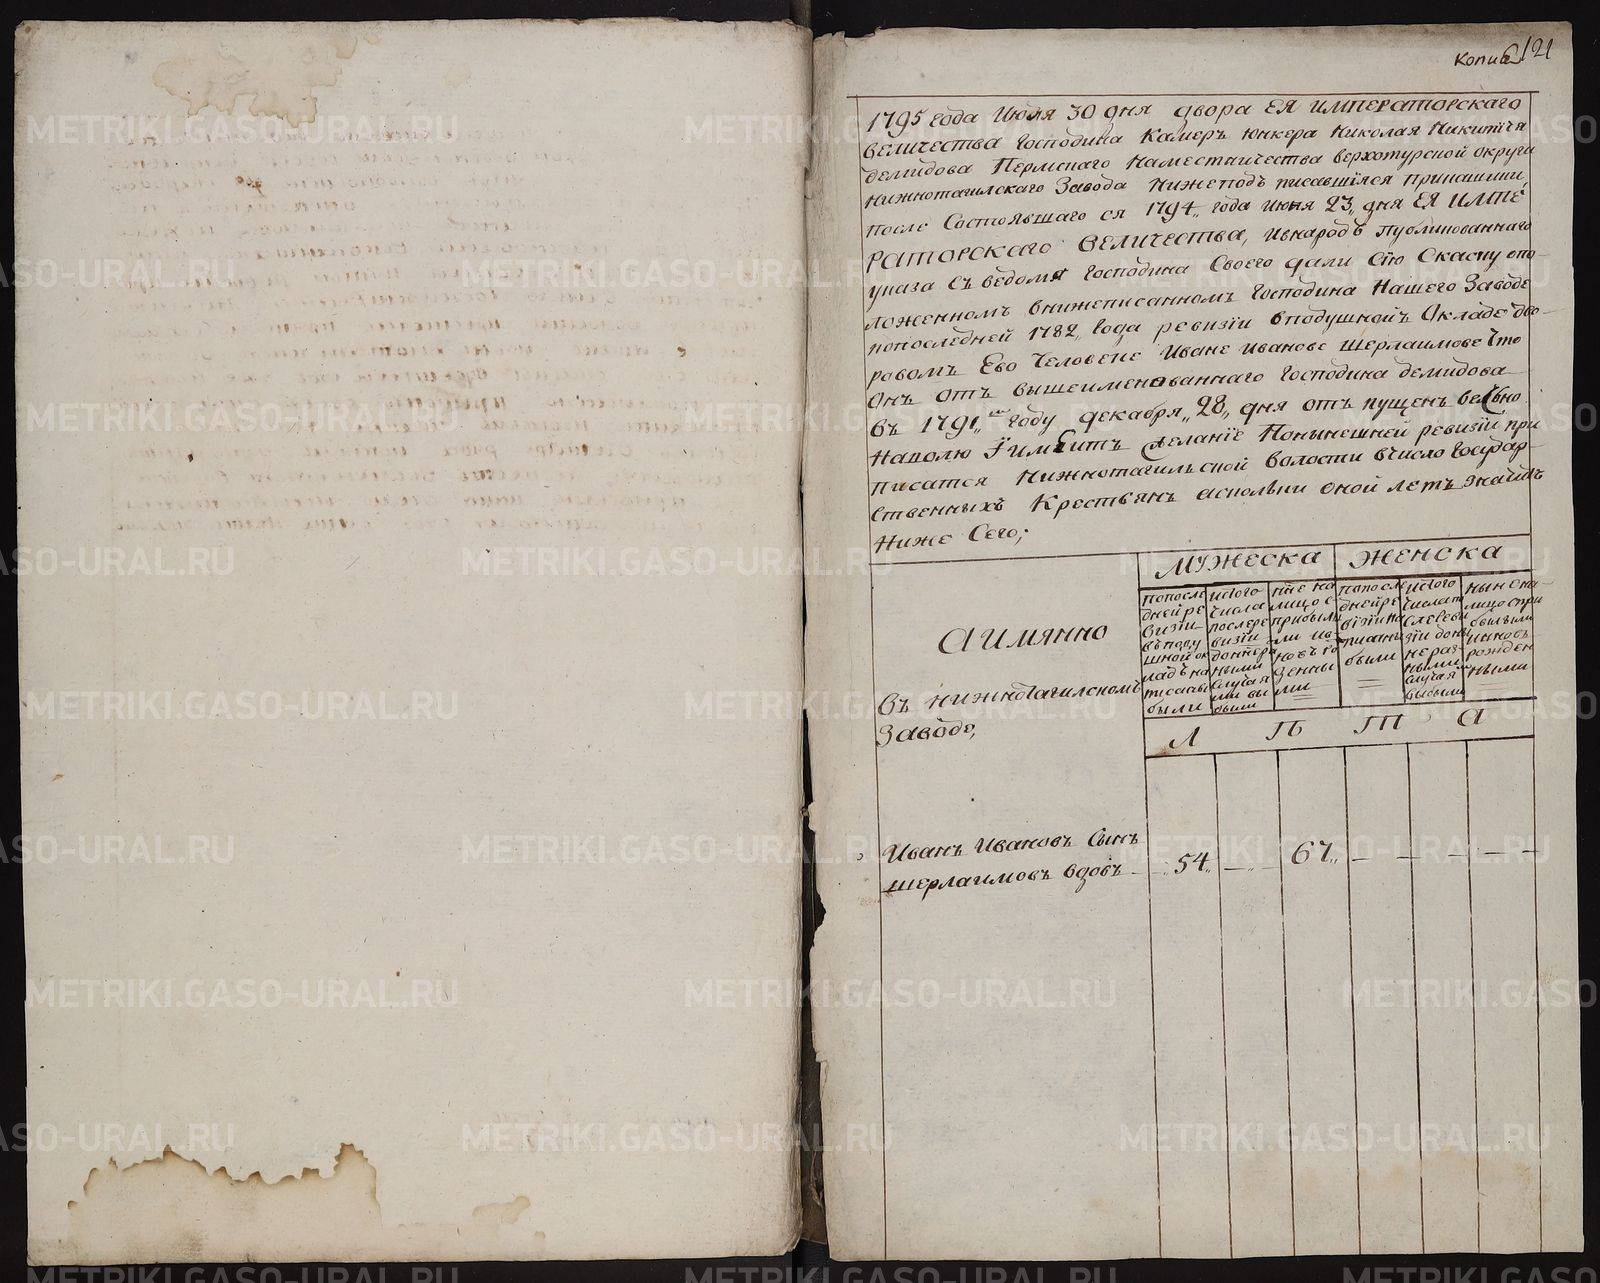 Копия 121
1795 года Июля 30 дня двора ЕЯ ИМПЕРАТОРСКАГО
ВЕЛИЧЕСТВА Господина Камеръ юнкера Николая Никитича
демидова Пермскаго Наместничества верхотурской округи
нижнотагилскаго Завода Нижеподъ писавшїяся прикащики
после Состоявшаго ся 1794,, года июня 23,, дня ЕЯ ИМПЕ
РАТОРСКАГО ВЕЛИЧЕСТВА, ивнародъ публикованнаго
указа Съ ведома господина Своего дали Сїю Скаску опо
ложенномъ внижеписанномъ Господина Нашего Заводе
попоследней 1782,, года ревизїи вподушной Окладе дво-
ровомъ Ево Человеке Иване Иванове шерлаимове Что
Онъ отъ вышеименованнаго Господина демидова
Въ 1791,, году декабря,, 28,, дня отъ пущенъ вечно
Наволю Ї имеитъ желанїе Понынешней ревизїи при
писатся Нижнотагильской волости вчисло Государ-
ственныхъ Крестьянъ асколки оной летъ значитъ
Ниже Сего;
МУЖЕСКА ЖЕНСКА
АИМЯННО
попосле дней ре визїи въподу шной ок ладъ на писаны были
исого числа послере визїи доныне разными случая ми вы были
ныне на лицо с прибылы ли ив новь ро жденны ми
попосле дней ре визїи на писаны были
исого числапо слеревизїи доны не раз ными случая выбыли
нынена лицо спри былыми ивновь рожден ными
въ нижнотагилскомъ
Заводе,
Л Ѣ Т А
Иванъ Ивановъ Сынъ
шерлаимовъ вдовъ - 54,, - 67,, - - - -
METRIKI.GASO-URAL.RU